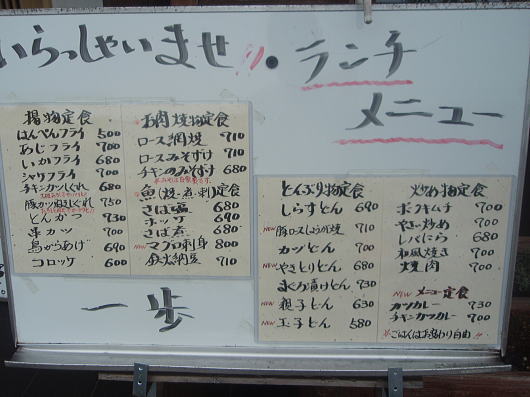 いらっしゃいませ!!・ランチ
メニュー
揚物定食
はんぺんフライ 500
あじフライ 700
いかフライ 680
シャリフライ 700
チキンカツしぐれ 680
豚カツねぎしぐれ 750
とんかつ 730
串カツ 700
鳥からあげ 690
コロッケ 600
お肉焼物定食
ロース網焼 710
ロースみそずけ 710
チキンのみそずけ 680
魚・焼・煮・刺定食
さば塩 680
ホッケ 690
さば煮 680
NEW マグロ刺身 800
鉄火納豆 710
どんぶり物定食
しらすどん 690
NEW 豚ロースしょうが焼 710
カツどん 700
NEW やきとりどん 680
まぐろ漬けどん 730
NEW 親子どん 630
NEW 玉子どん 580
炒め物定食
ポークキムチ 700
やさい炒め 700
レバにら 680
和風焼き 700
焼肉 700
NEW メニュー定食
カツカレー 730
チキンカツカレー 700
※ごはんはおかわり自由!!
一歩